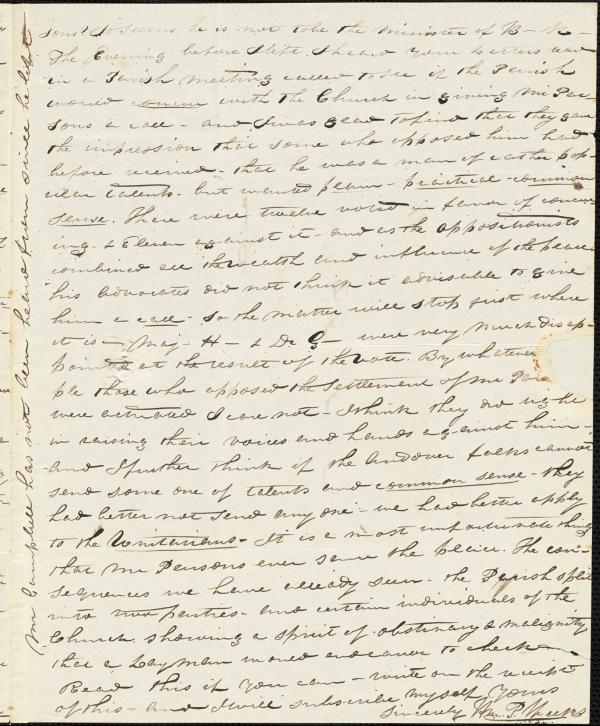 sons? It seems he is not to be the minister of B- R-
The Evening before I left I heard your Letters read
in a Parish meeting called to see if the Parish
would concur with the Church in giving Mr Par-
sons a call - and I was glad to find that they gave
the impression that some who opposed him had
before received - that he was a man of rather pop-
ular talents - but wanted plain - practical - common
sense. There were twelve voted in favor of concur-
ing - & Eleven against it - and as the oppositionists
combined all the wealth and influence of the place
his advocates did not think it advisable to give
him a call - so the matter will stop just where
it is - Maj - H - & De G - were very much disap-
pointed at the result of the vote. By whatever
ple those who opposed the settlement of Mr Par
were actuated I care not - I think they did right
in raising their voices and hands against him -
and I further think if the Andover folks cannot
send some one of talents and common sense - they
had better not send any one - we had better apply
to the Unitarians - It is a most unfortunate thing
that Mr Parsons ever saw the place. The con-
sequences we have already seen - the Parish split
into two parties - and certain individuals of the
Church showing a spirit of obstinacy & malignity
that a Layman would endeavor to check
Read this if you can - write on the receipt
of this - and I will subscribe myself yours
Sincerely Wm. P.
Mr Campbell has not been heard from since he left